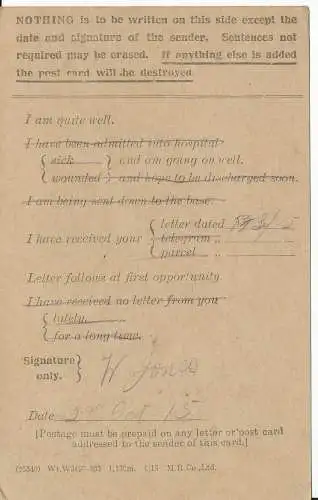 NOTHING is to be written on this side except the
date and signature of the sender. Sentences not
required may be erased. If anything else is added
the post card will be destroyed.
I am quite well.
I have been admitted into hospital
{ sick } and am going on well.
{ wounded } and hope to be discharged soon.
I am being sent down to the base.
I have received your { letter dated
telegram ,,
parcel ,,
Letter follows at first opportunity
I have received no letter from you
{ lately.
{ for a long time.
Signature } only. W Jones
Date Oct 15
[Postage must be prepaid on any letter or post card
addressed to the sender of this card.]